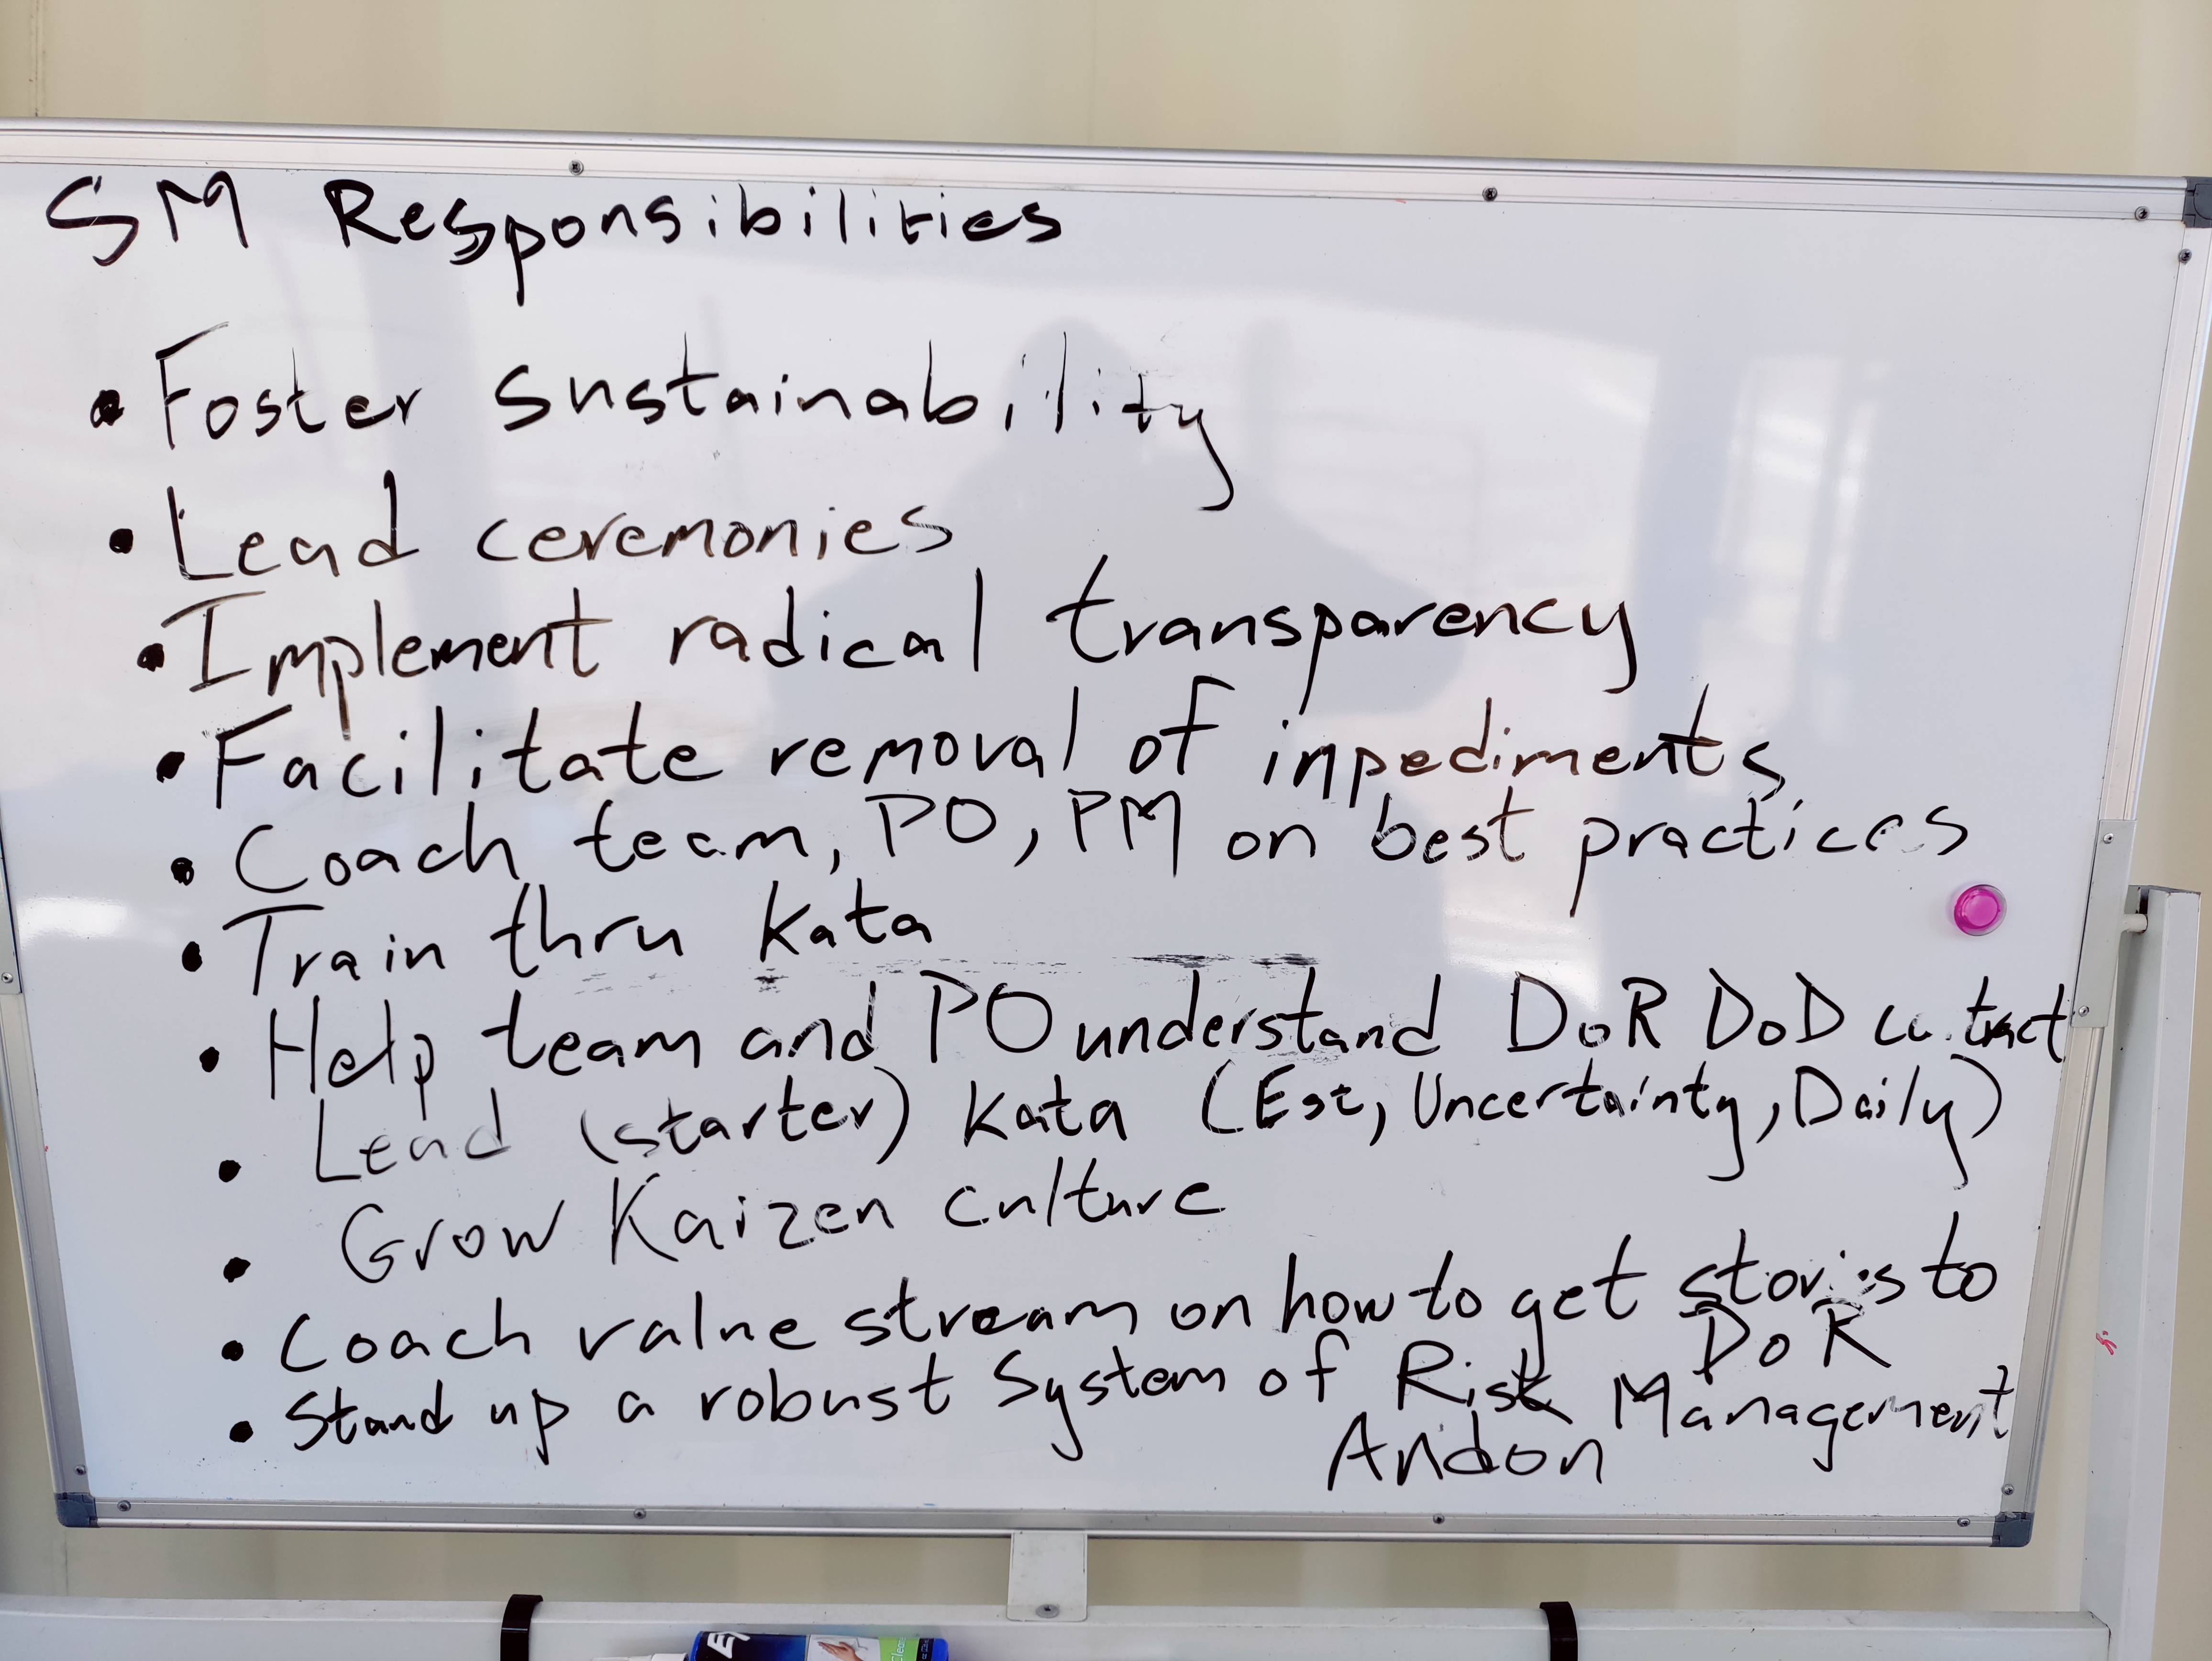 SM Responsibilities
• Foster sustainability
• Lead ceremonies
• Implement radical transparency
• Facilitate removal of inpediments
• Coach team, PO, PM on best practices
• Train thru Kata
• Help team and PO understand DoR DoD
• Lead (starter) Kata (Est, Uncertainty, Daily)
• Grow Kaizen culture
• Coach value stream on how to get stories to
DoR
• Stand up a robust System of Risk Management
Andon